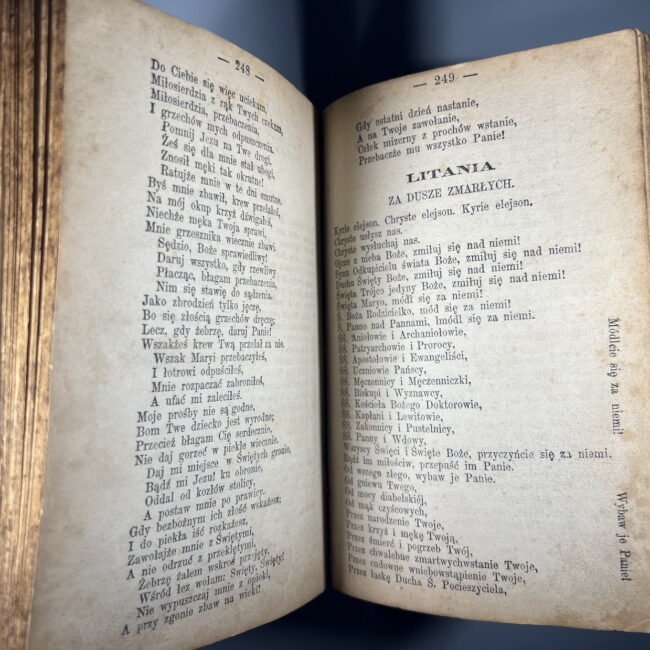 — 248 —
Do Ciebie się więc uciekam,
Miłosierdzia z rąk Twych czekam,
Miłosierdzia, przebaczenia,
I grzechów mych odpuszczenia.
Pomnij Jezu na Twe drogi,
Żeś się dla mnie stał ubogi,
Znosił męki tak okrutne!
Ratujże mnie w te dni smutne.
Byś mnie zbawił, krew przelałeś,
Na mój okup krzyż dźwigałeś,
Niechże męka Twoja sprawi,
Mnie grzesznika wiecznie zbawi.
Sędzio, Boże sprawiedliwy!
Daruj wszystko, gdy rzewliwy
Płacząc, błagam przebaczenia,
Nim się stawię do sądzenia.
Jako zbrodzień tylko jęczę,
Bo się złością grzechów dręczę;
Lecz, gdy żebrzę, daruj Panie!
Wszakżeś krew Twą przelał za nie.
Wszak Maryi przebaczyłeś,
I łotrowi odpuściłeś,
Mnie rozpaczać zabroniłeś,
A ufać mi zaleciłeś.
Moje prośby nie są godne,
Bom Twe dziecko jest wyrodne;
Przecież błagam Cię serdecznie,
Nie daj gorzeć w piekle wiecznie.
Daj mi miejsce w Świętych gronie,
Bądź mi Jezu! ku obronie,
Oddal od kozłów stolicy,
A postaw mnie po prawicy.
Gdy bezbożnym ich złość wskażesz,
I do piekła iść rozkażesz,
Zawołajże mnie z Świętymi,
A nie odrzuć z przeklętymi,
Żebrzę żalem wskroś przejęty,
Wśród łez wołam: Święty, Święty!
Nie wypuszczaj mnie z opieki,
A przy zgonie zbaw na wieki!
— 249 —
Gdy ostatni dzień nastanie,
A na Twoje zawołanie,
Człek mizerny z prochów wstanie,
Przebaczże mu wszystko Panie!
LITANIA
ZA DUSZE ZMARŁYCH.
Kyrie elejson. Chryste elejson. Kyrie elejson.
Chryste usłysz nas.
Chryste wysłuchaj nas.
Ojcze z nieba Boże, zmiłuj się nad niemi!
Synu Odkupicielu świata Boże, zmiłuj się nad niemi!
Duchu Święty Boże, zmiłuj się nad niemi!
Święta Trójco jedyny Boże, zmiłuj się nad niemi!
Święta Maryo, módl się za niemi!
Ś. Boża Rodzicielko, módl się za niemi!
Ś. Panno nad Pannami, módl się za niemi.
ŚŚ. Aniołowie i Archaniołowie,
ŚŚ. Patryarchowie i Prorocy,
ŚŚ. Apostołowie i Ewangeliści,
ŚŚ. Uczniowie Pańscy,
ŚŚ. Męczennicy i Męczenniczki,
ŚŚ. Biskupi i Wyznawcy,
ŚŚ. Kościoła Bożego Doktorowie,
ŚŚ. Kapłani i Lewitowie,
ŚŚ. Zakonnicy i Pustelnicy,
ŚŚ. Panny i Wdowy,
Módlcie się za niemi!
Wszyscy Święci i Święte Boże, przyczyńcie się za niemi.
Bądź im miłościw, przepuść im Panie.
Od wszego złego, wybaw je Panie.
Od gniewu Twego,
Od mocy diabelskiéj,
Od mąk czyścowych,
Przez narodzenie Twoje,
Przez krzyż i mękę Twoją,
Przez śmierć i pogrzeb Twój,
Przez chwalebne zmartwychwstanie Twoje,
Przez cudowne wniebowstąpienie Twoje,
Przez łaskę Ducha Ś. Pocieszyciela,
Wybaw je Panie!